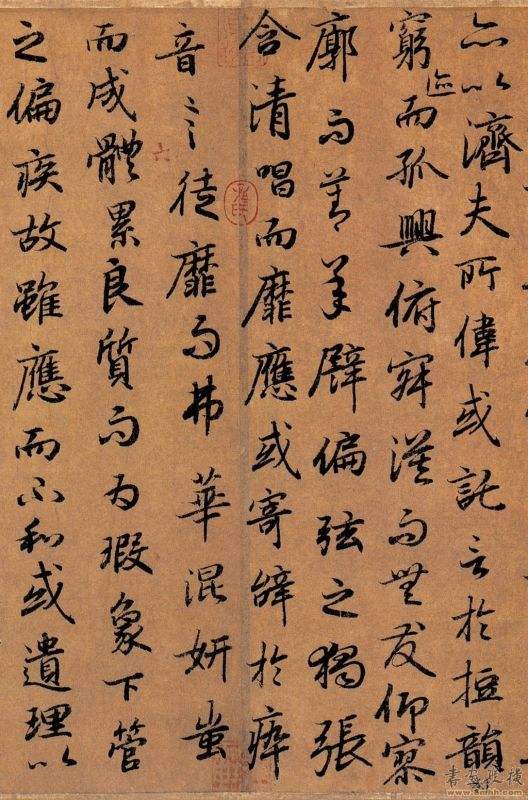 亦以濟夫所偉或託言於短韻
窮迹而孤興俯寂漠而無友仰寥
廓而莫承譬偏弦之獨張
含清唱而靡應或寄辭於瘁
音言徒靡而弗華混妍蚩
而成體累良質而為瑕象下管
之偏疾故雖應而不和或遺理以